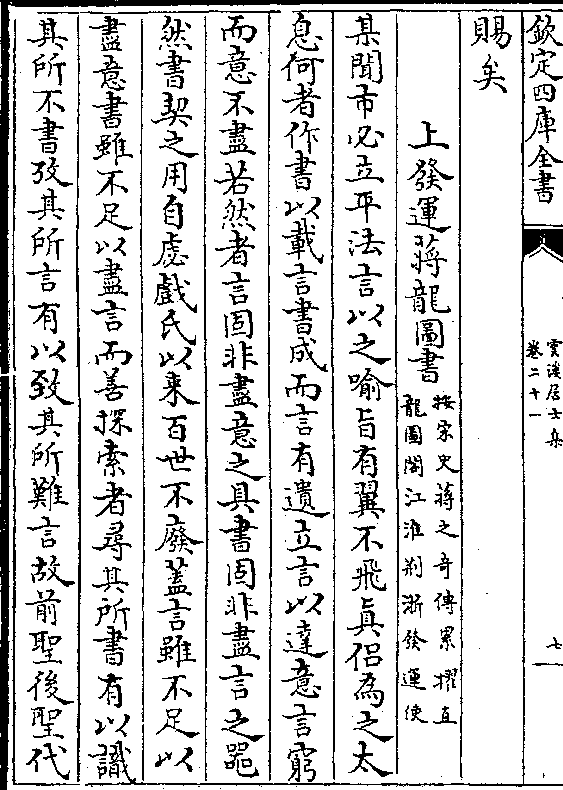 欽定四庫全書
雲溪居士集
卷二十一
七
賜矣
上發運蔣龍圖書
按宋史蔣之奇傳累擢直
龍圖閣江淮荆浙發運使
某聞市必立平法言以之喻旨有翼不飛真侣為之太
息何者作書以載言書成而言有遺立言以達意言窮
而意不盡若然者言固非盡意之具書固非盡言之噐
然書契之用自虙戲氏以來百世不廢蓋言雖不足以
盡意書雖不足以盡言而善探索者尋其所書有以識
其所不書攷其所言有以致其所難言故前聖後聖代